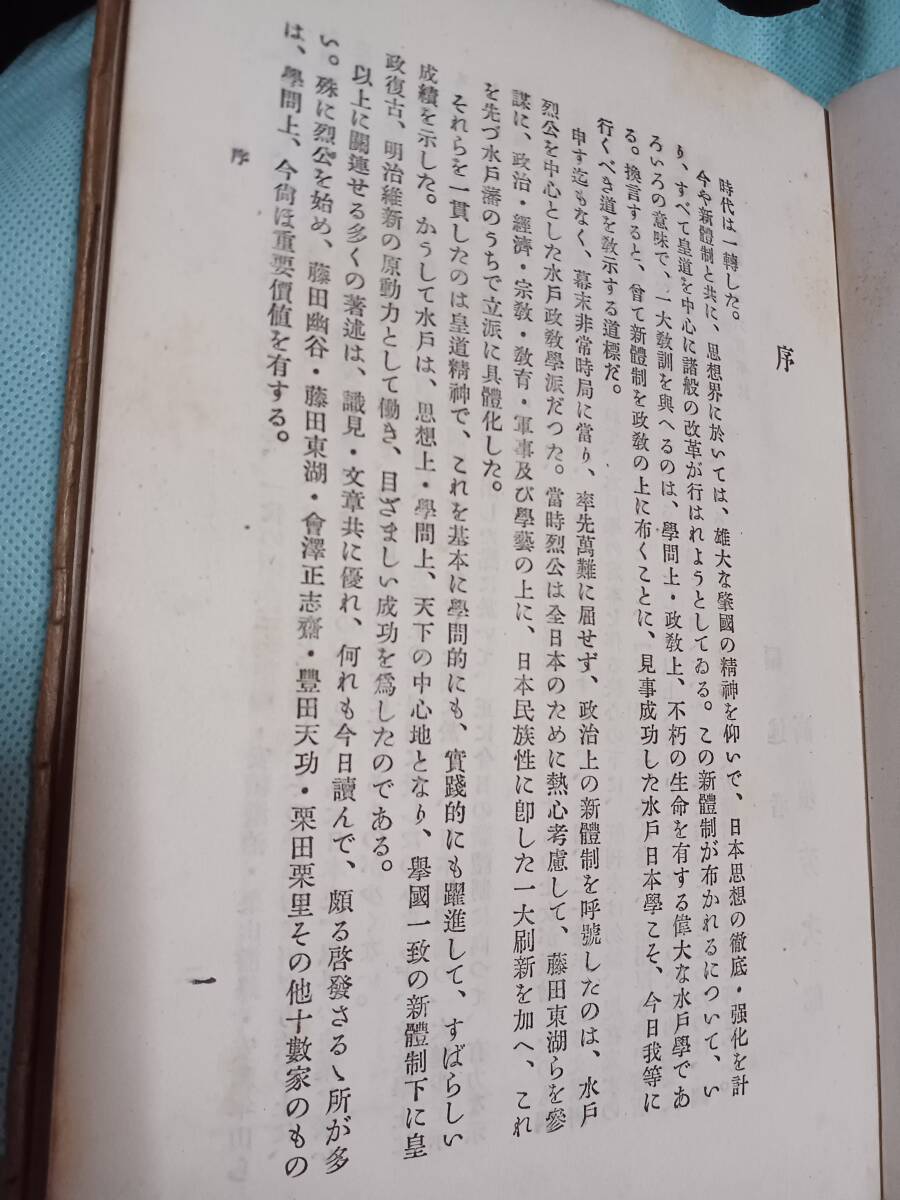 序
時代は一轉した。
今や新體制と共に、思想界に於いては、雄大な肇國の精神を仰いで、日本思想の徹底・强化を計
り、すべて皇道を中心に諸般の改革が行はれようとしてゐる。この新體制が布かれるについて、い
ろいろの意味で、一大敎訓を與へるのは、學問上・政敎上、不朽の生命を有する偉大な水戶學であ
る。換言すると、曾て新體制を政敎の上に布くことに、見事成功した水戶日本學こそ、今日我等に
行くべき道を敎示する道標だ。
申す迄もなく、幕末非常時局に當り、率先萬難に屈せず、政治上の新體制を呼號したのは、水戶
烈公を中心とした水戶政敎學派だつた。當時烈公は全日本のために熱心考慮して、藤田東湖らを參
謀に、政治・經濟・宗敎・敎育・軍事及び學藝の上に、日本民族性に卽した一大刷新を加へ、これ
を先づ水戶藩のうちで立派に具體化した。
それらを一貫したのは皇道精神で、これを基本に學問的にも、實踐的にも躍進して、すばらしい
成績を示した。かうして水戶は、思想上・學問上、天下の中心地となり、擧國一致の新體制下に皇
政復古、明治維新の原動力として働き、目ざましい成功を爲したのである。
以上に關連せる多くの著述は、識見・文章共に優れ、何れも今日讀んで、頗る啓發さるゝ所が多
い。殊に烈公を始め、藤田幽谷・藤田東湖・會澤正志齋・豐田天功・栗田栗里その他十數家のもの
は、學問上、今尙ほ重要價値を有する。
序
一